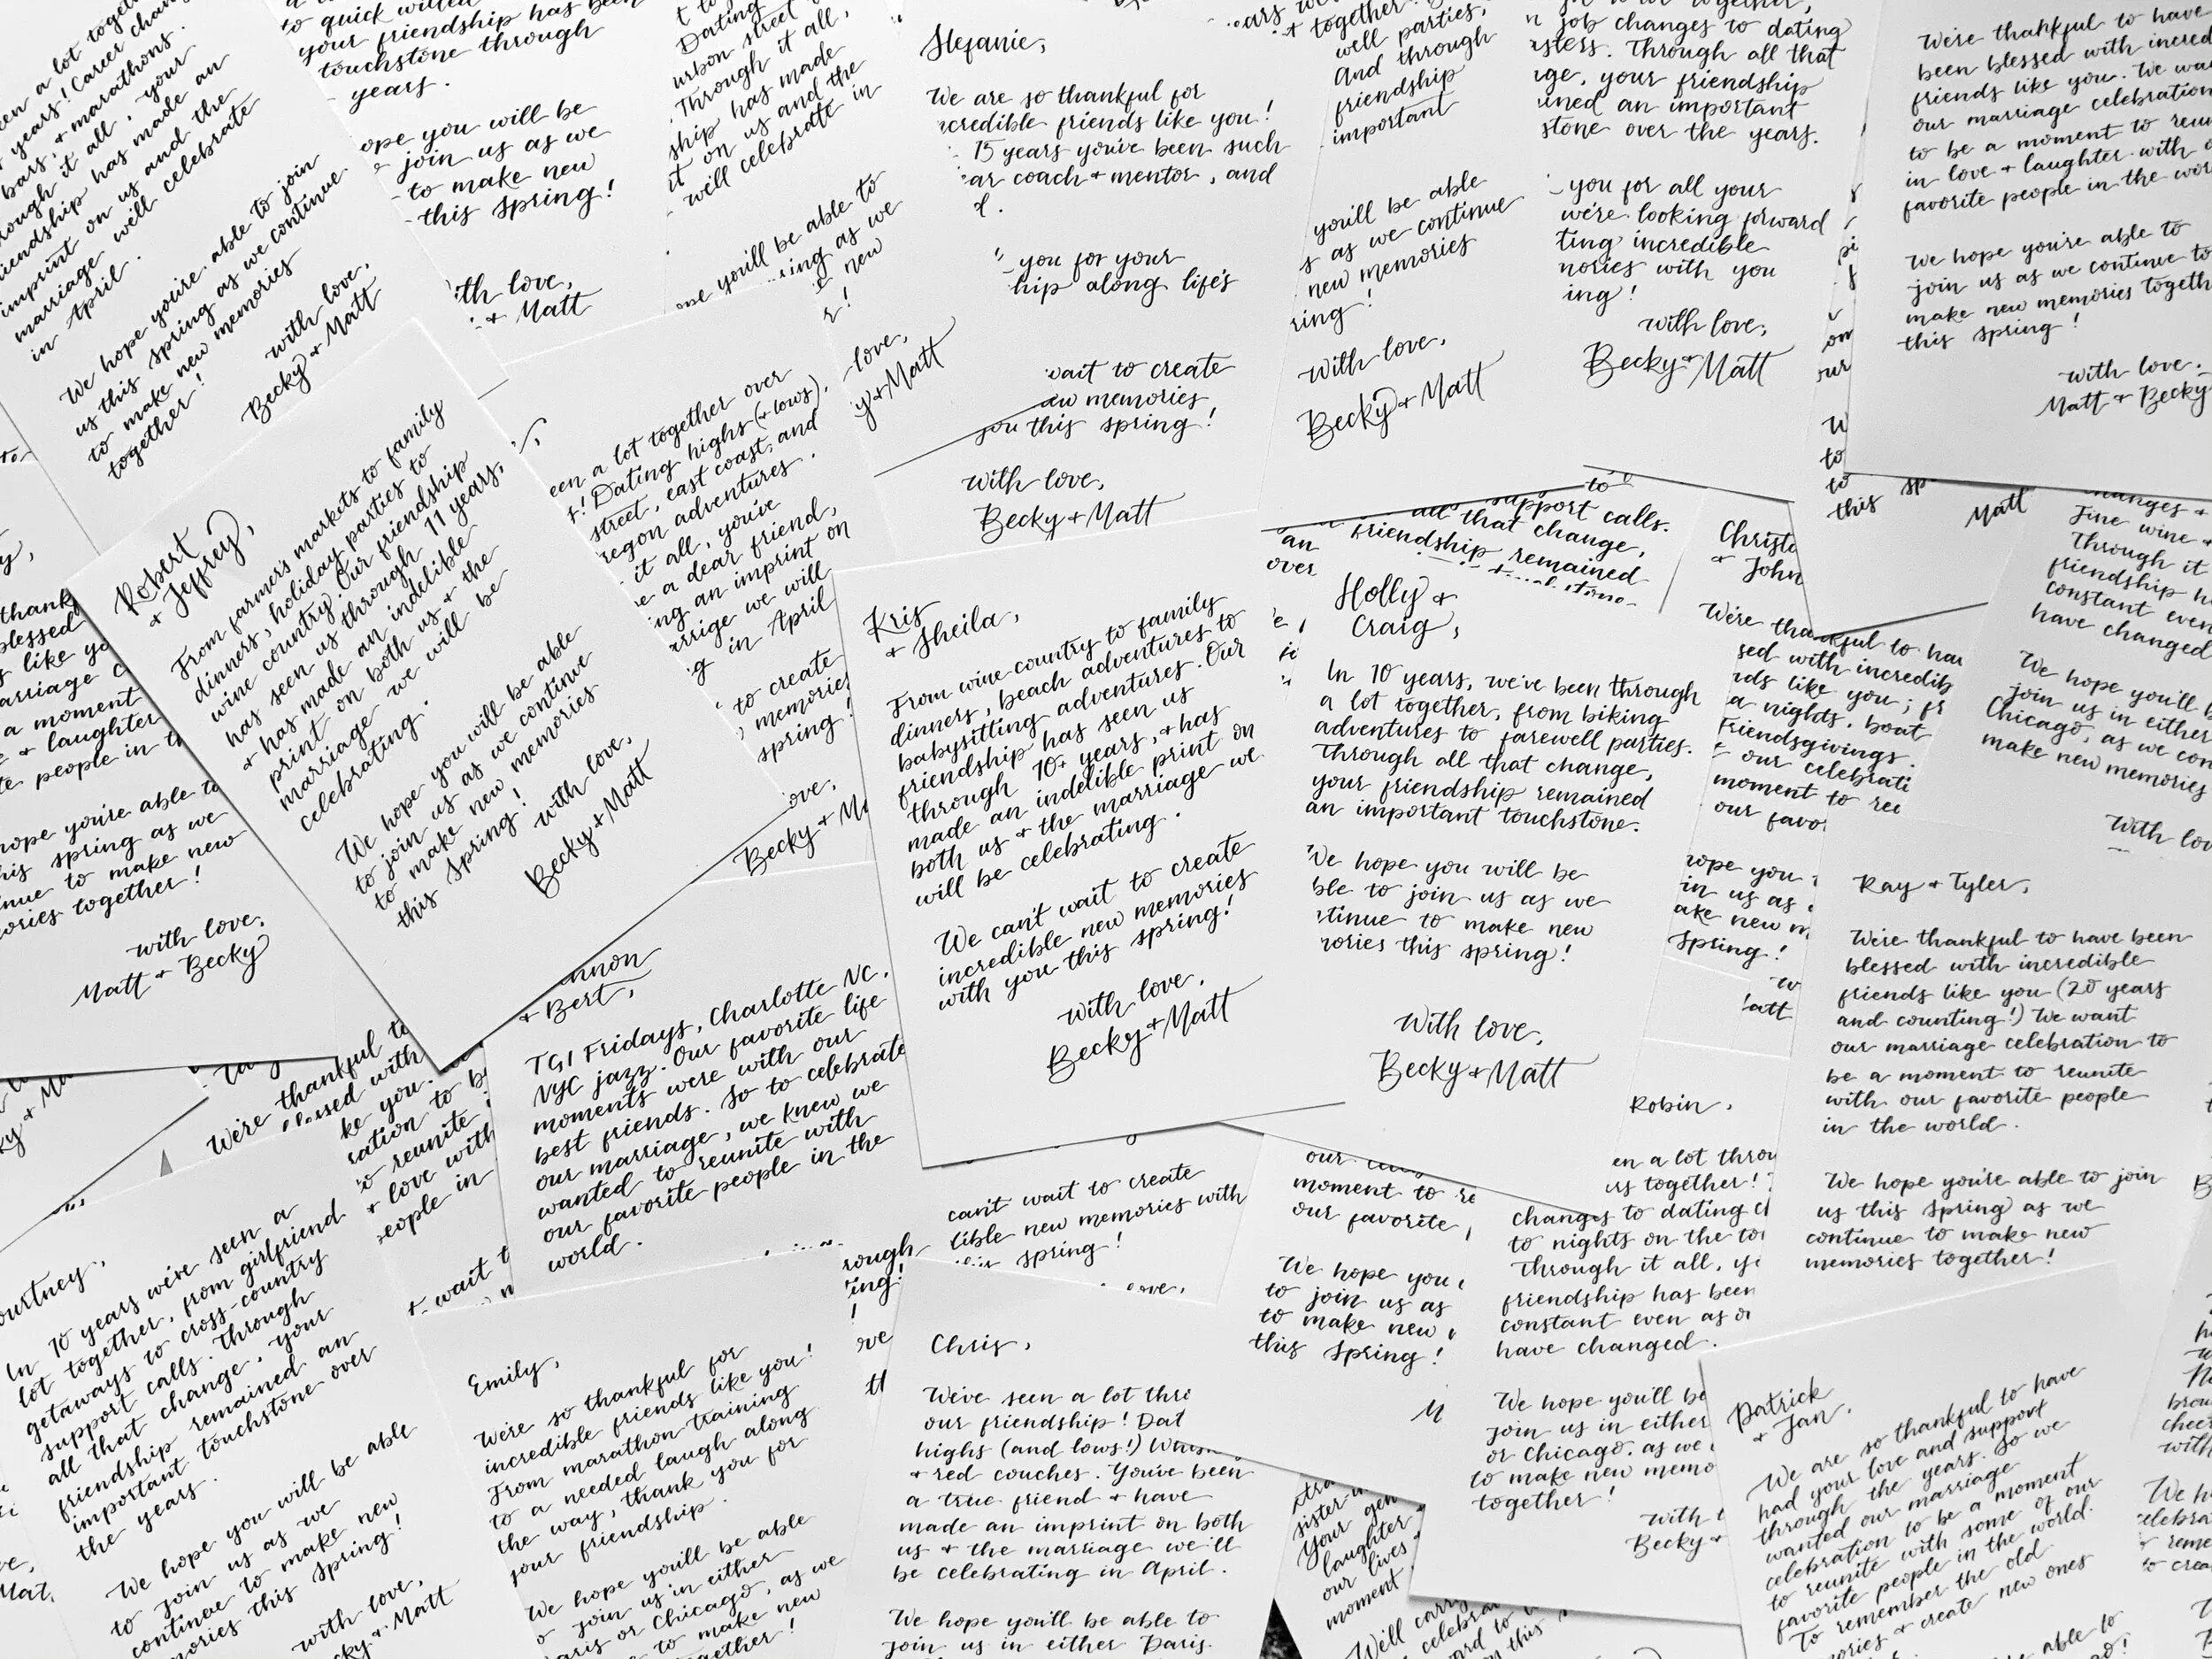 een a lot together
years! Career chan
bars, + marathons.
rough it all, your
iendship has made an
imprint on us and the
marriage will celebrate
in April.
We hope you're able to join
us this spring as we continue
to make new memories
together!
with love,
Becky + Matt
to quick witted
your friendship has been
touchstone through
years.
ope you will be
join us as we
to make new
this spring!
ith love,
+ Matt
Dating
urbon street
Through it all,
ship has made
it on us and the
will celebrate in
you'll be able to
ring as we
new
r!
love,
y + Matt
Stefanie,
We are so thankful for
ncredible friends like you!
15 years you've been such
ar coach + mentor, and
d.
you for your
hip along life's
wait to create
ew memories
you this spring!
With love,
Becky + Matt
ears we
t together.
well parties,
And through
friendship
important
you'll be able
s as we continue
new memories
ring!
With love,
Becky + Matt
job changes to dating
asters. Through all that
nge, your friendship
ined an important
stone over the years.
you for all your
we're looking forward
ting incredible
mories with you
ing!
with love,
Becky + Matt
We're thankful to have
been blessed with incred
friends like you. We wa
our marriage celebration
to be a moment to reun
in love + laughter with o
favorite people in the wor
We hope you're able to
join us as we continue to
make new memories togeth
this spring!
with love,
Matt + Becky
thank
blessed
s like yo
arriage c
a moment
e + laughter
te people in t
hope you're able to
his spring as we
nue to make new
ories together!
with love,
Matt + Becky
Robert
+ Jeffrey,
From farmers markets to family
dinners, holiday parties to
wine country. Our friendship
has seen us through 11 years,
+ has made an indelible
print on both us + the
marriage we will be
celebrating.
We hope you will be able
to join us as we continue
to make new memories
this Spring!
with love,
Becky + Matt
een a lot together over
r! Dating highs (+ lows),
street, east coast, and
regon adventures.
it all, you've
e a dear friend,
ng an imprint on
arrige we will
g in April
to create
memorie
spring!
ove,
Becky + Ma
Kris
+ Sheila,
From wine country to family
dinners, beach adventures to
babysitting adventures. Our
friendship has seen us
through 10+ years, + has
made an indelible print on
both us + the marriage we
will be celebrating.
We can't wait to create
incredible new memories
with you this spring!
with love,
Becky + Matt
support calls.
all that change,
friendship remained
an
over
Holly +
Craig,
In 10 years, we've been through
a lot together, from biking
adventures to farewell parties.
Through all that change,
your friendship remained
an important touchstone.
We hope you will be
ble to join us as we
ntinue to make new
mories this spring!
With love,
Becky + Matt
Christ
+ John
We're thankful to hav
sed with incredib
nds like you; fr
a nights, boat
Friendsgivings.
our celebrati
moment to reu
our favo
hope you
in us as
ake new m
Spring!
att
this sp
Matt
hanges +
Fine wine +
Through it
friendship ha
constant even
have changed
We hope you'll b
join us in either
Chicago, as we con
make new memories
With lov
Ray + Tyler,
We're thankful to have been
blessed with incredible
friends like you (20 years
and counting!) We want
our marriage celebration to
be a moment to reunite
with our favorite people
in the world.
We hope you're able to join
us this Spring as we
continue to make new
memories together!
nnon
+ Bert,
TGI Fridays, Charlotte NC,
NYC jazz. Our favorite life
moments were with our
best friends. So to celebrate
our marriage, we knew we
wanted to reunite with
our favorite people in the
world.
We're thankful to
lessed with
ke you.
ration to b
o reunite
+ love with
eople in
wait t
can't wait to create
dible new memories with
this spring!
ove,
our
moment to re
our favorite
We hope you
to join us as
to make new
this Spring!
M
Robin,
en a lot throu
rs together!
changes to dating c
to nights on the to
Through it all, yo
friendship has been
constant even as o
have changed.
We hope you'll be
join us in either
or Chicago, as we
to make new memo
together!
with l
Becky +
ourtney,
In 10 years we've seen a
lot together, from girlfriend
getaways to cross-country
support calls. Through
all that change, your
friendship remained an
important touchstone over
the years.
We hope you will be able
to join us as we
continue to make new
mories this Spring!
with love,
cky + Matt
Emily,
We're so thankful for
incredible friends like you!
From marathon training
to a needed laugh along
the way, thank you for
your friendship.
We hope you'll be able
o join us in either
aris or Chicago, as we
to make new
gether!
Chris,
We've seen a lot thro
our friendship! Dat
highs (and lows!)
+ red couches. You've been
a true friend + have
made an imprint on both
us + the marriage we'll
be celebrating in April.
We hope you'll be able to
join us in either Paris
sister-i
Your gen
laughter
our lives
moment
We'll carry
celebra
Patrick
+ Jan,
We are so thankful to have
had your love and support
through the years. So we
wanted our marriage
celebration to be a moment
to reunite with some of our
favorite people in the world.
To remember the old
ories + create new ones
able to
We h
elebra
+ reme
to crea